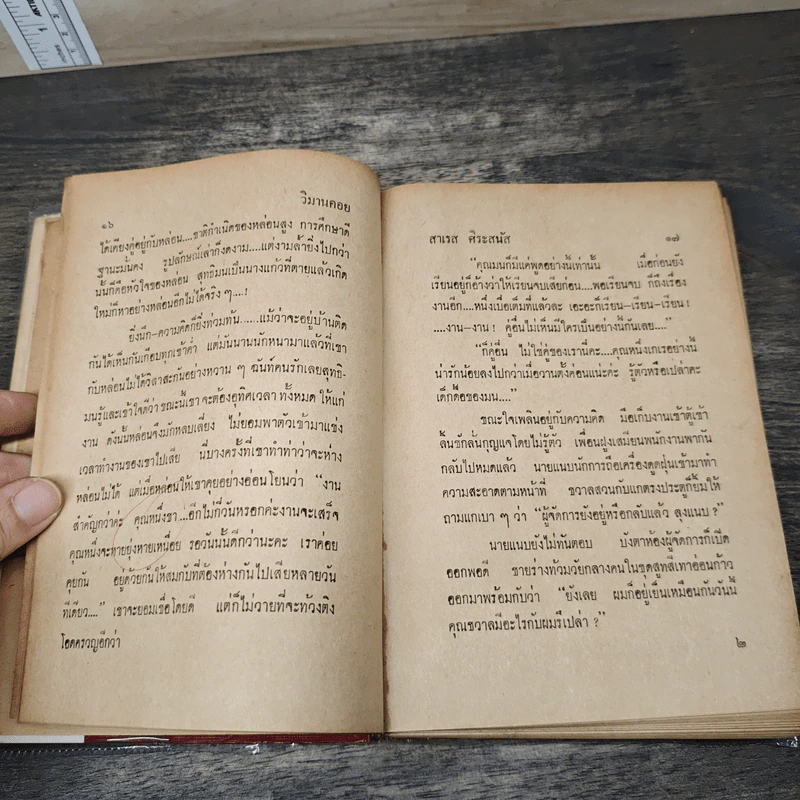 ๑๖
วิมานคอย
ได้เคียงคู่อยู่กับหล่อน....ชาติกำเนิดของหล่อนสูง การศึกษาดี
ฐานะมั่นคง รูปลักษณ์เล่าก็งดงาม....แต่งามล้ำยิ่งไปกว่า
นั้นก็คือหัวใจของหล่อน สุทธิมนเป็นนางแก้วที่ตายแล้วเกิด
ใหม่ก็หาอย่างหล่อนอีกไม่ได้จริง ๆ....!
ยิ่งนึก-ความคิดก็ยิ่งท่วมทัน......แม้ว่าจะอยู่บ้านติด
กันได้เห็นกันเกือบทุกเช้าค่ำ แต่มันนานนักหนามาแล้วที่เขา
กับหล่อนไม่ได้วิสาสะกันอย่างหวาน ๆ ฉันท์คนรักเลยสุทธิ-
มนรู้และเข้าใจดีว่า ขณะนี้เขาจะต้องอุทิศเวลา ทั้งหมด ให้แก่
งาน ดังนั้นหล่อนจึงมักหลบเลี่ยง ไม่ยอมพาตัวเข้ามาแข่ง
เวลาทำงานของเขาไปเสีย นี่บางครั้งที่เขาทำท่าว่าจะห่าง
หล่อนไม่ได้ แต่เมื่อหล่อนให้เขาคุยอย่างอ่อนโยนว่า "งาน
สำคัญกว่าค่ะ คุณหนึ่งขา...อีกไม่กี่วันหรอกค่ะงานจะเสร็จ
คุณหนึ่งจะหายยุ่งหายเหนื่อย รอวันนั้นดีกว่านะคะ เราค่อย
คุยกัน อยู่ด้วยกันให้สมกับที่ต้องห่างกันไปเสียหลายวัน
ทีเดียว...." เขาจะยอมเชื่อโดยดี แต่ก็ไม่วายที่จะท้วงติง
โอดครวญอีกว่า
สาเรส ศิระสนัส
๑๗
"คุณมนก็มีแค่พูดอย่างนี้เท่านั้น เมื่อก่อนยัง
เรียนอยู่ก็อ้างว่าให้เรียนจบเสียก่อน....พอเรียนจบ ก็ถึงเรื่อง
งานอีก....หนึ่งเบื่อเต็มที่แล้วละ เอะอะก็เรียน-เรียน-เรียน!
....งาน-งาน! คู่อื่นไม่เห็นมีใครเป็นอย่างนี้กันเลย...."
"ก็คู่อื่น ไม่ใช่คู่ของเรานี่คะ....คุณหนึ่งเกเรอย่างนี้
น่ารักน้อยลงไปกว่าเมื่อวานตั้งค่อนแน่ะค่ะ รู้ตัวหรือเปล่าคะ
เด็กดื้อของมน...."
ขณะใจเพลินอยู่กับความคิด มือเก็บงานเข้าตู้เข้า
ลิ้นชักลั่นกุญแจโดยไม่รู้ตัว เพื่อนฝูงเสมียนพนักงานพากัน
กลับไปหมดแล้ว นายแนบนักการถือเครื่องดูดฝุ่นเข้ามาทำ
ความสะอาดตามหน้าที่ ชวาลสวนกับแกตรงประตูก็ยิ้มให้
ถามแกเบา ๆ ว่า "ผู้จัดการยังอยู่หรือกลับแล้ว ลุงแนบ?"
นายแนบยังไม่ทันตอบ บังตาห้องผู้จัดการก็เปิด
ออกพอดี ชายร่างท้วมวัยกลางคนในชุดสูทสีเทาอ่อนก้าว
ออกมาพร้อมกับว่า "ยังเลย ผมก็อยู่เย็นเหมือนกันวันนี้
คุณชวาลมีอะไรกับผมรึเปล่า?"
๒